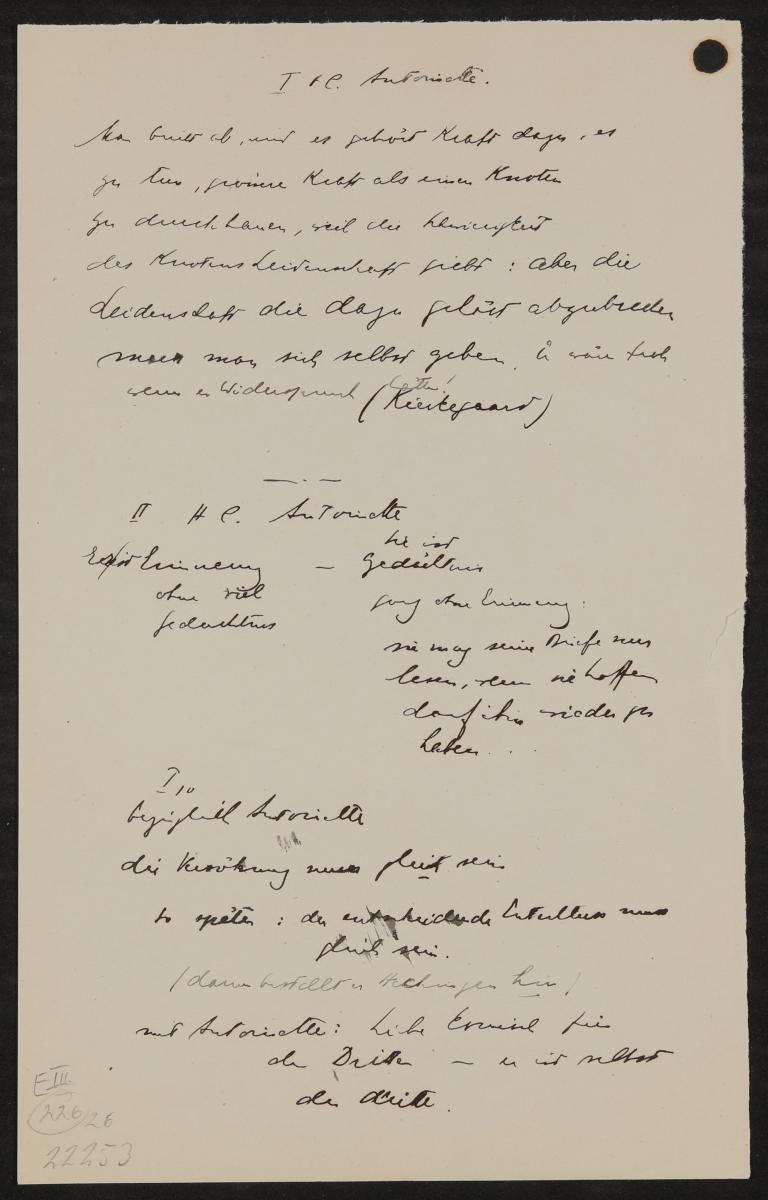 I HC. Antoinette.
Man bricht ab, und es gehört Kraft dazu, es
zu tun, grössere Kraft als einen Knoten
zu durchhauen, weil die Schwierigkeit
des Knotens Leidenschaft giebt : aber die
Leidenschaft die dazu gehört abzubrechen
muss man sich selbst geben.
wenn er Widerspruch hätte!
(Kierkegaard)
II H C. Antoinette
Sie ist
Er ist Erinnerung — Gedächtnis
ohne viel
ganz ohne Erinnerung:
gedächtnis
sie mag seine Briefe nur
lesen, wenn sie hoffen
darf ihn wieder zu
haben . . .
I 10
bezüglich Antoinette
die Versöhnung muss gleich sein
so später : der entscheidende Entschluss muss
gleich sein.
(darum bestellt er Hechingen hin)
mit Antoinette: Liebe für
den Dritten — er ist selbst
der dritte.
E III.
226 26
22253